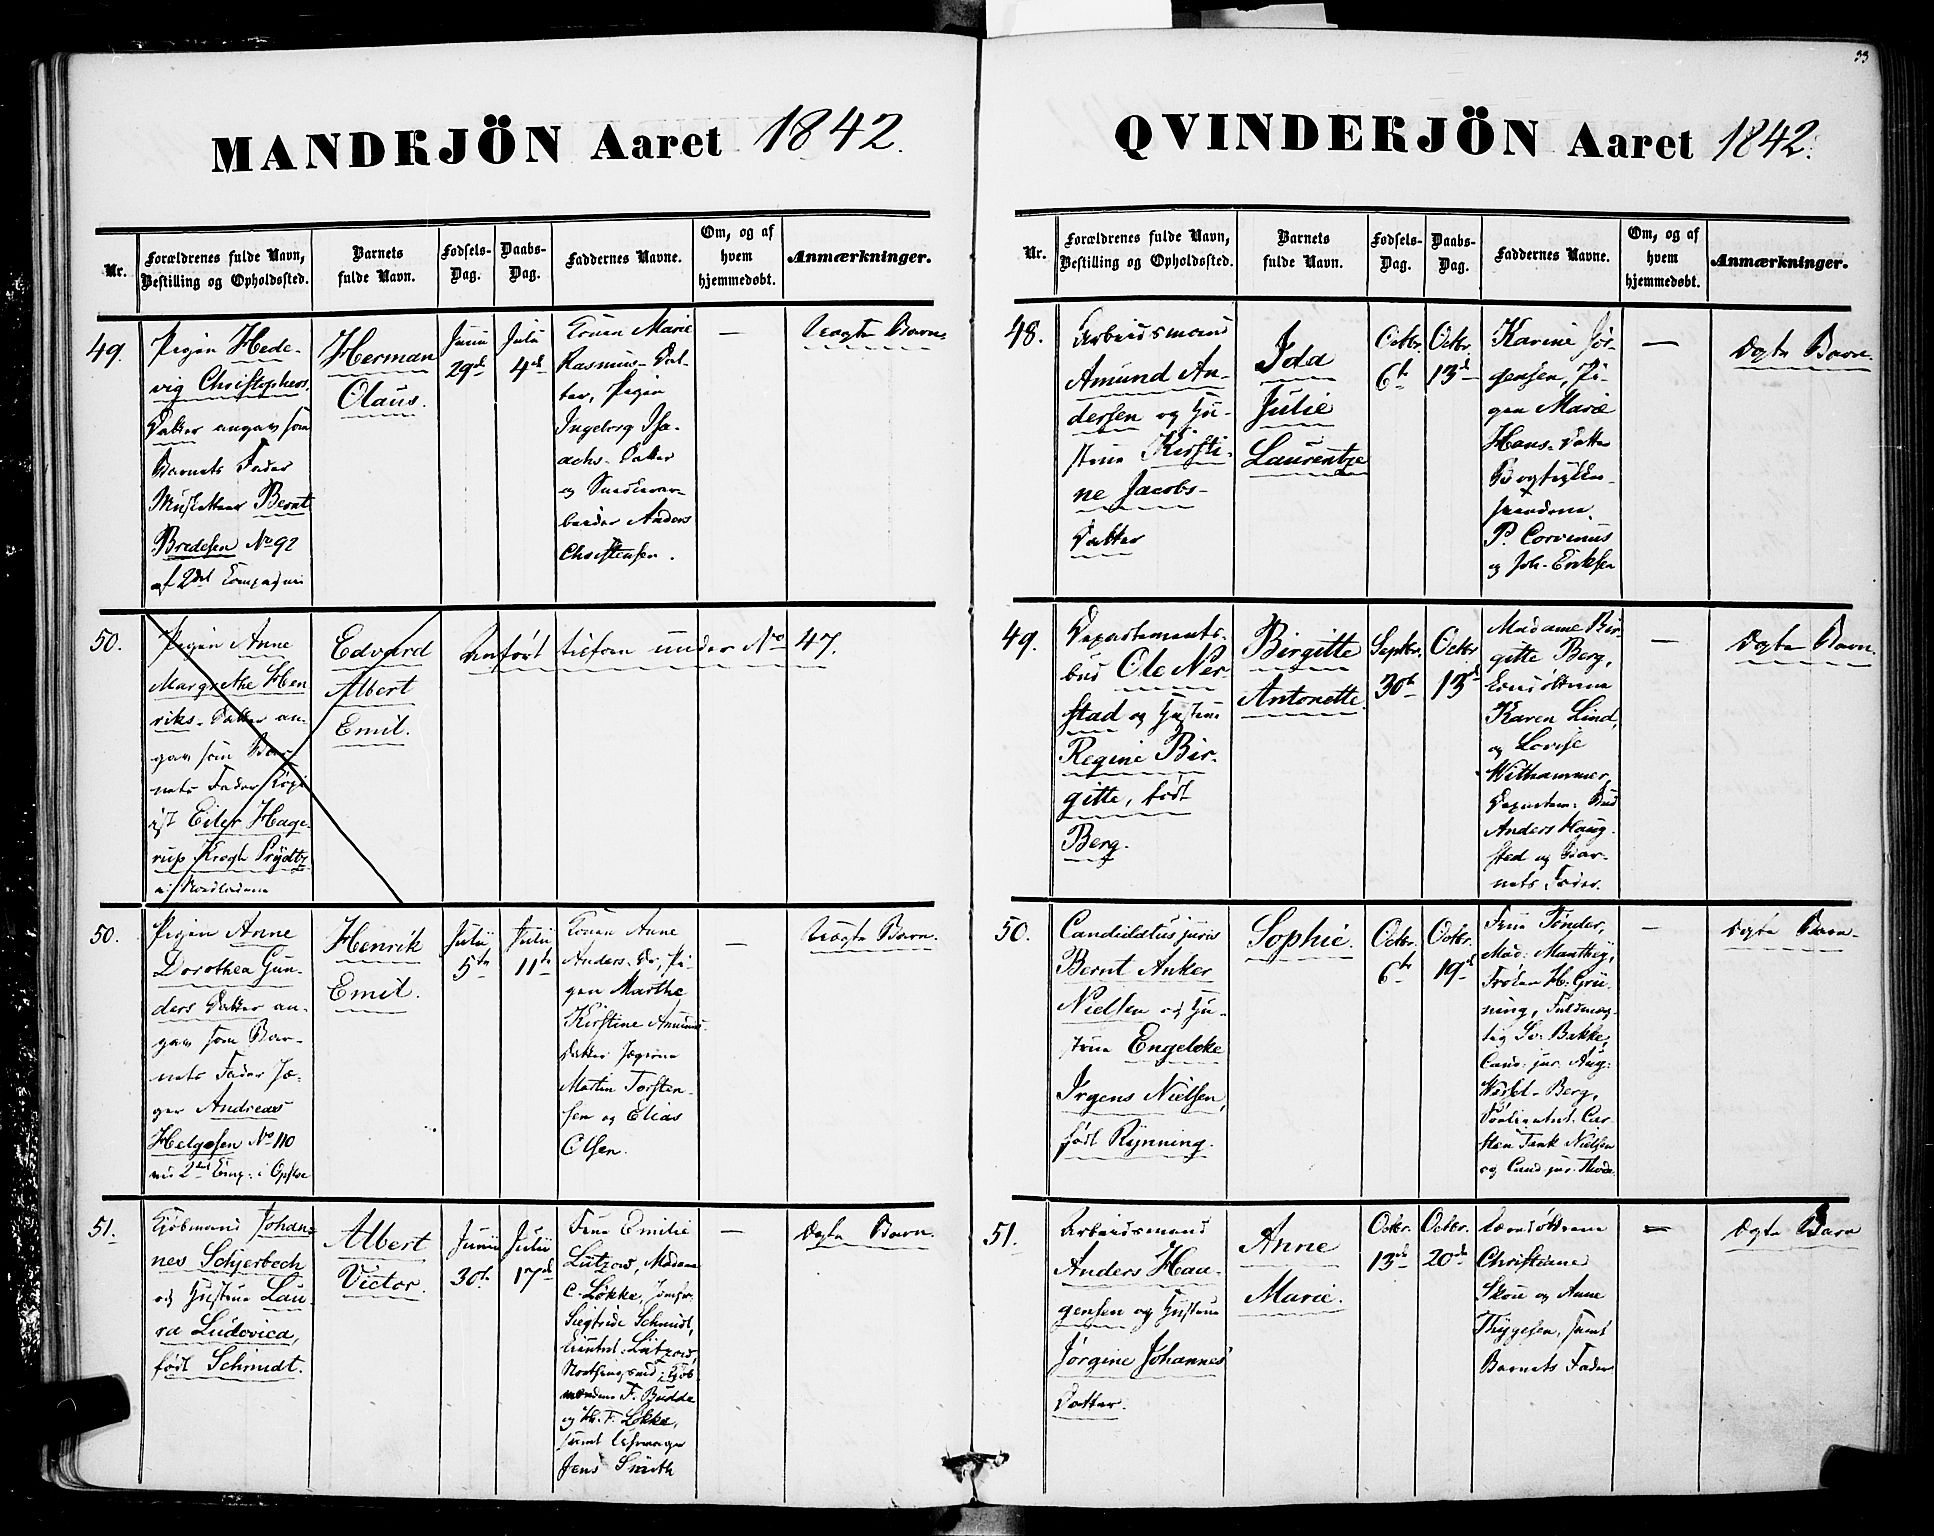 33
MANDKJÖN Aaret 1842.
Nr.
Forældrenes fulde Navn,
Bestilling og Opholdssted.
Barnets
fulde Navn.
Fødsels-
Dag.
Daabs-
Dag.
Faddernes Navne.
Om, og af
hvem
hjemmedøbt.
Anmærkninger.
49.
Pigen Hede-
vig Christophers
Datter angav som
Barnets Fader
Musketeer Bernt
Bredesen No 92
af 2det Compagni
Herman
Olaus.
Junii
29de
Julii
4de
Konen Marie
Rasmus-Dat-
ter, Pigen
Ingeborg Isa-
achs-Datter
og
Anders
Christensen.
—
Uægte Barn.
50.
Pigen Anne
Margrethe Hen
riks-Datter an-
gav som Bar
nets Fader Kopi
ist Eiler Hage-
rup Krogh Prydtz
i Nordlandene
Edvard
Albert
Emil.
Anført tilforn under No 47.
50.
Pigen Anne
Dorothea Gun-
ders Datter an-
gav som Bar-
nets Fader Jæ-
ger Andreas
Helgesen No 110
ved 2det Comp: i Opsloe
Henrik
Emil.
Julii
5te
Julii
11te
Konen Anne
Anders-Dr, Pi-
gen Marthe
Kirstine Amunds
Datter Jægerne
Martin Torsten-
sen og Elias
Olsen.
—
Uægte Barn.
51.
Kjøbmand Johan-
nes Schjerbech
og Hustrue Lau-
ra Ludovica,
født Schmidt.
Albert
Victor.
Junii
30te
Julii
17de
Frue Emilie
Lützow, Madame
C. Løkke, Jomfr.
Siegtride Schmidt,
Lieutnt: Lützow,
Kjøb-
mændene F. Budde
og Hr. F. Løkke,
samt Uhrmager
Jens Smith
—
Ægte Barn.
QVINDEKJÖN Aaret 1842.
Nr.
Forældrenes fulde Navn,
Bestilling og Opholdssted.
Barnets
fulde Navn.
Fødsels-
Dag.
Daabs-
Dag.
Faddernes Navne.
Om, og af
hvem
hjemmedøbt.
Anmærkninger.
48.
Arbeidsmand
Amund An-
dersen og Hu-
strue Kirsti-
ne Jacobs-
Datter
Ida
Julie
Laurentze
Octbr.
6te
Octbr.
13de
Karine Jør-
gensen, Pi-
gen Marie
Hans-Datter
Bogtrykker-
svendene
P. Corvinus
og Joh. Eriksen
—
Ægte Barn.
49.
Departements-
bud Ole Ner-
stad og Hustrue
Regine Bir-
gitte, født
Berg.
Birgitte
Antonette.
Septbr.
30te
Octbr.
13de
Madame Bir-
gitte Berg,
Karen Lind,
og Lovise
Withammer,
Departem: Bud
Anders Haug-
sted og Bar-
nets Fader.
—
Ægte Barn.
50.
Candidatus juris
Bernt Anker
Nielsen og Hu-
strue Engelcke
Irgens Nielsen,
født Rynning.
Sophie.
Octbr.
6te
Octbr.
19de
Frue Tønder,
Mad: Manthey,
Frøken H. Grü-
ning, Fuldmæg-
tig Sv. Bakke,
Cand: jur. Aug:
Wessel-Berg,
Carsten Tank Nielsen
og Cand. jur. Thode
—
Ægte Barn.
51.
Arbeidsmand
Anders Hau-
gensen og Hustrue
Jørgine Johannes
Datter.
Anne
Marie.
Octbr.
13de
Octbr.
20de
Christiane
Skou og Anne
Thygesen, samt
Barnets Fader
—
Ægte Barn